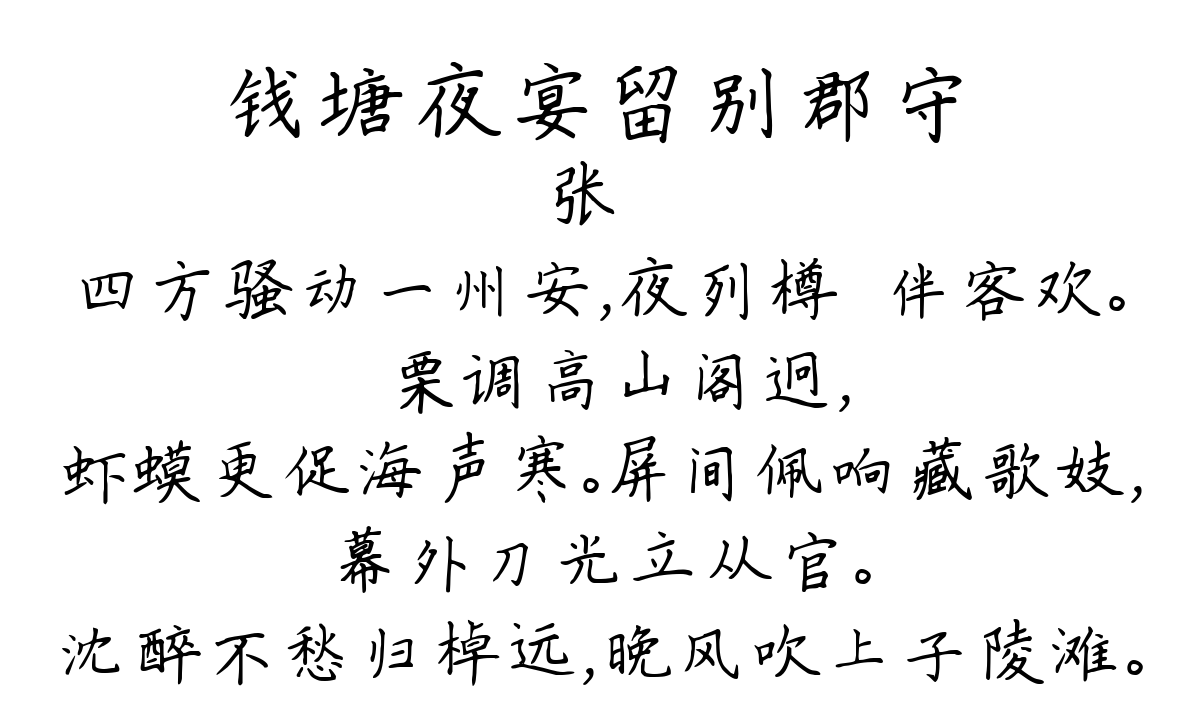 钱塘夜宴留别郡守
张
四方骚动一州安,夜列樽 伴客欢。
栗调高山阁迥,
虾蟆更促海声寒。屏间佩响藏歌妓,
幕外刀光立从官。
沈醉不愁归棹远,晚风吹上子陵滩。